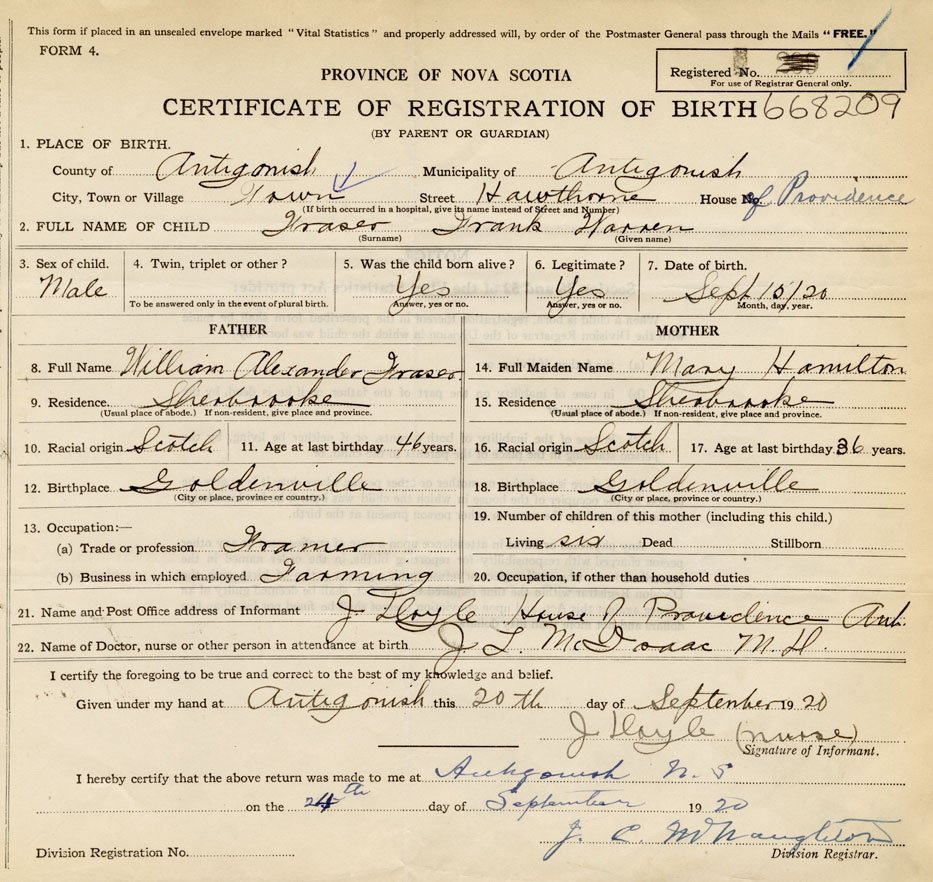 This form if placed in an unsealed envelope marked "Vital Statistics" and properly addressed will, by order of the Postmaster General pass through the Mails "FREE."
FORM 4.
Registered No.
For use of Registrar General only.
PROVINCE OF NOVA SCOTIA
CERTIFICATE OF REGISTRATION OF BIRTH 668209
(BY PARENT OR GUARDIAN)
1. PLACE OF BIRTH.
County of Antigonish Municipality of Antigonish
City, Town or Village Town Street Hawthorne House No. of Providence
(If birth occurred in a hospital, give its name instead of Street and Number)
2. FULL NAME OF CHILD Fraser Frank Warren
(Surname) (Given name)
3. Sex of child. 4. Twin, triplet or other? 5. Was the child born alive? 6. Legitimate? 7. Date of birth.
Male Yes Yes Sept 15/20
To be answered only in the event of plural birth. Answer, yes or no. Answer, yes or no. Month, day, year.
FATHER MOTHER
8. Full Name William Alexander Fraser 14. Full Maiden Name Mary Hamilton
9. Residence Sherbrooke 15. Residence Sherbrooke
(Usual place of abode.) If non-resident, give place and province. (Usual place of abode.) If non-resident, give place and province.
10. Racial origin Scotch 11. Age at last birthday 46 years. 16. Racial origin Scotch 17. Age at last birthday 36 years.
12. Birthplace Goldenville 18. Birthplace Goldenville
(City or place, province or country.) (City or place, province or country.)
13. Occupation:— 19. Number of children of this mother (including this child.)
(a) Trade or profession Framer Living six Dead Stillborn
(b) Business in which employed Farming 20. Occupation, if other than household duties
21. Name and Post Office address of Informant J. Hoyle House of Providence Ant.
22. Name of Doctor, nurse or other person in attendance at birth J L McIsaac M.D.
I certify the foregoing to be true and correct to the best of my knowledge and belief.
Given under my hand at Antigonish this 20 th day of September 19 20
J Hoyle (nurse)
Signature of Informant.
I hereby certify that the above return was made to me at Antigonish N. S
on the 24th day of September 19 20
J. C. McNaughton
Division Registrar.
Division Registration No.